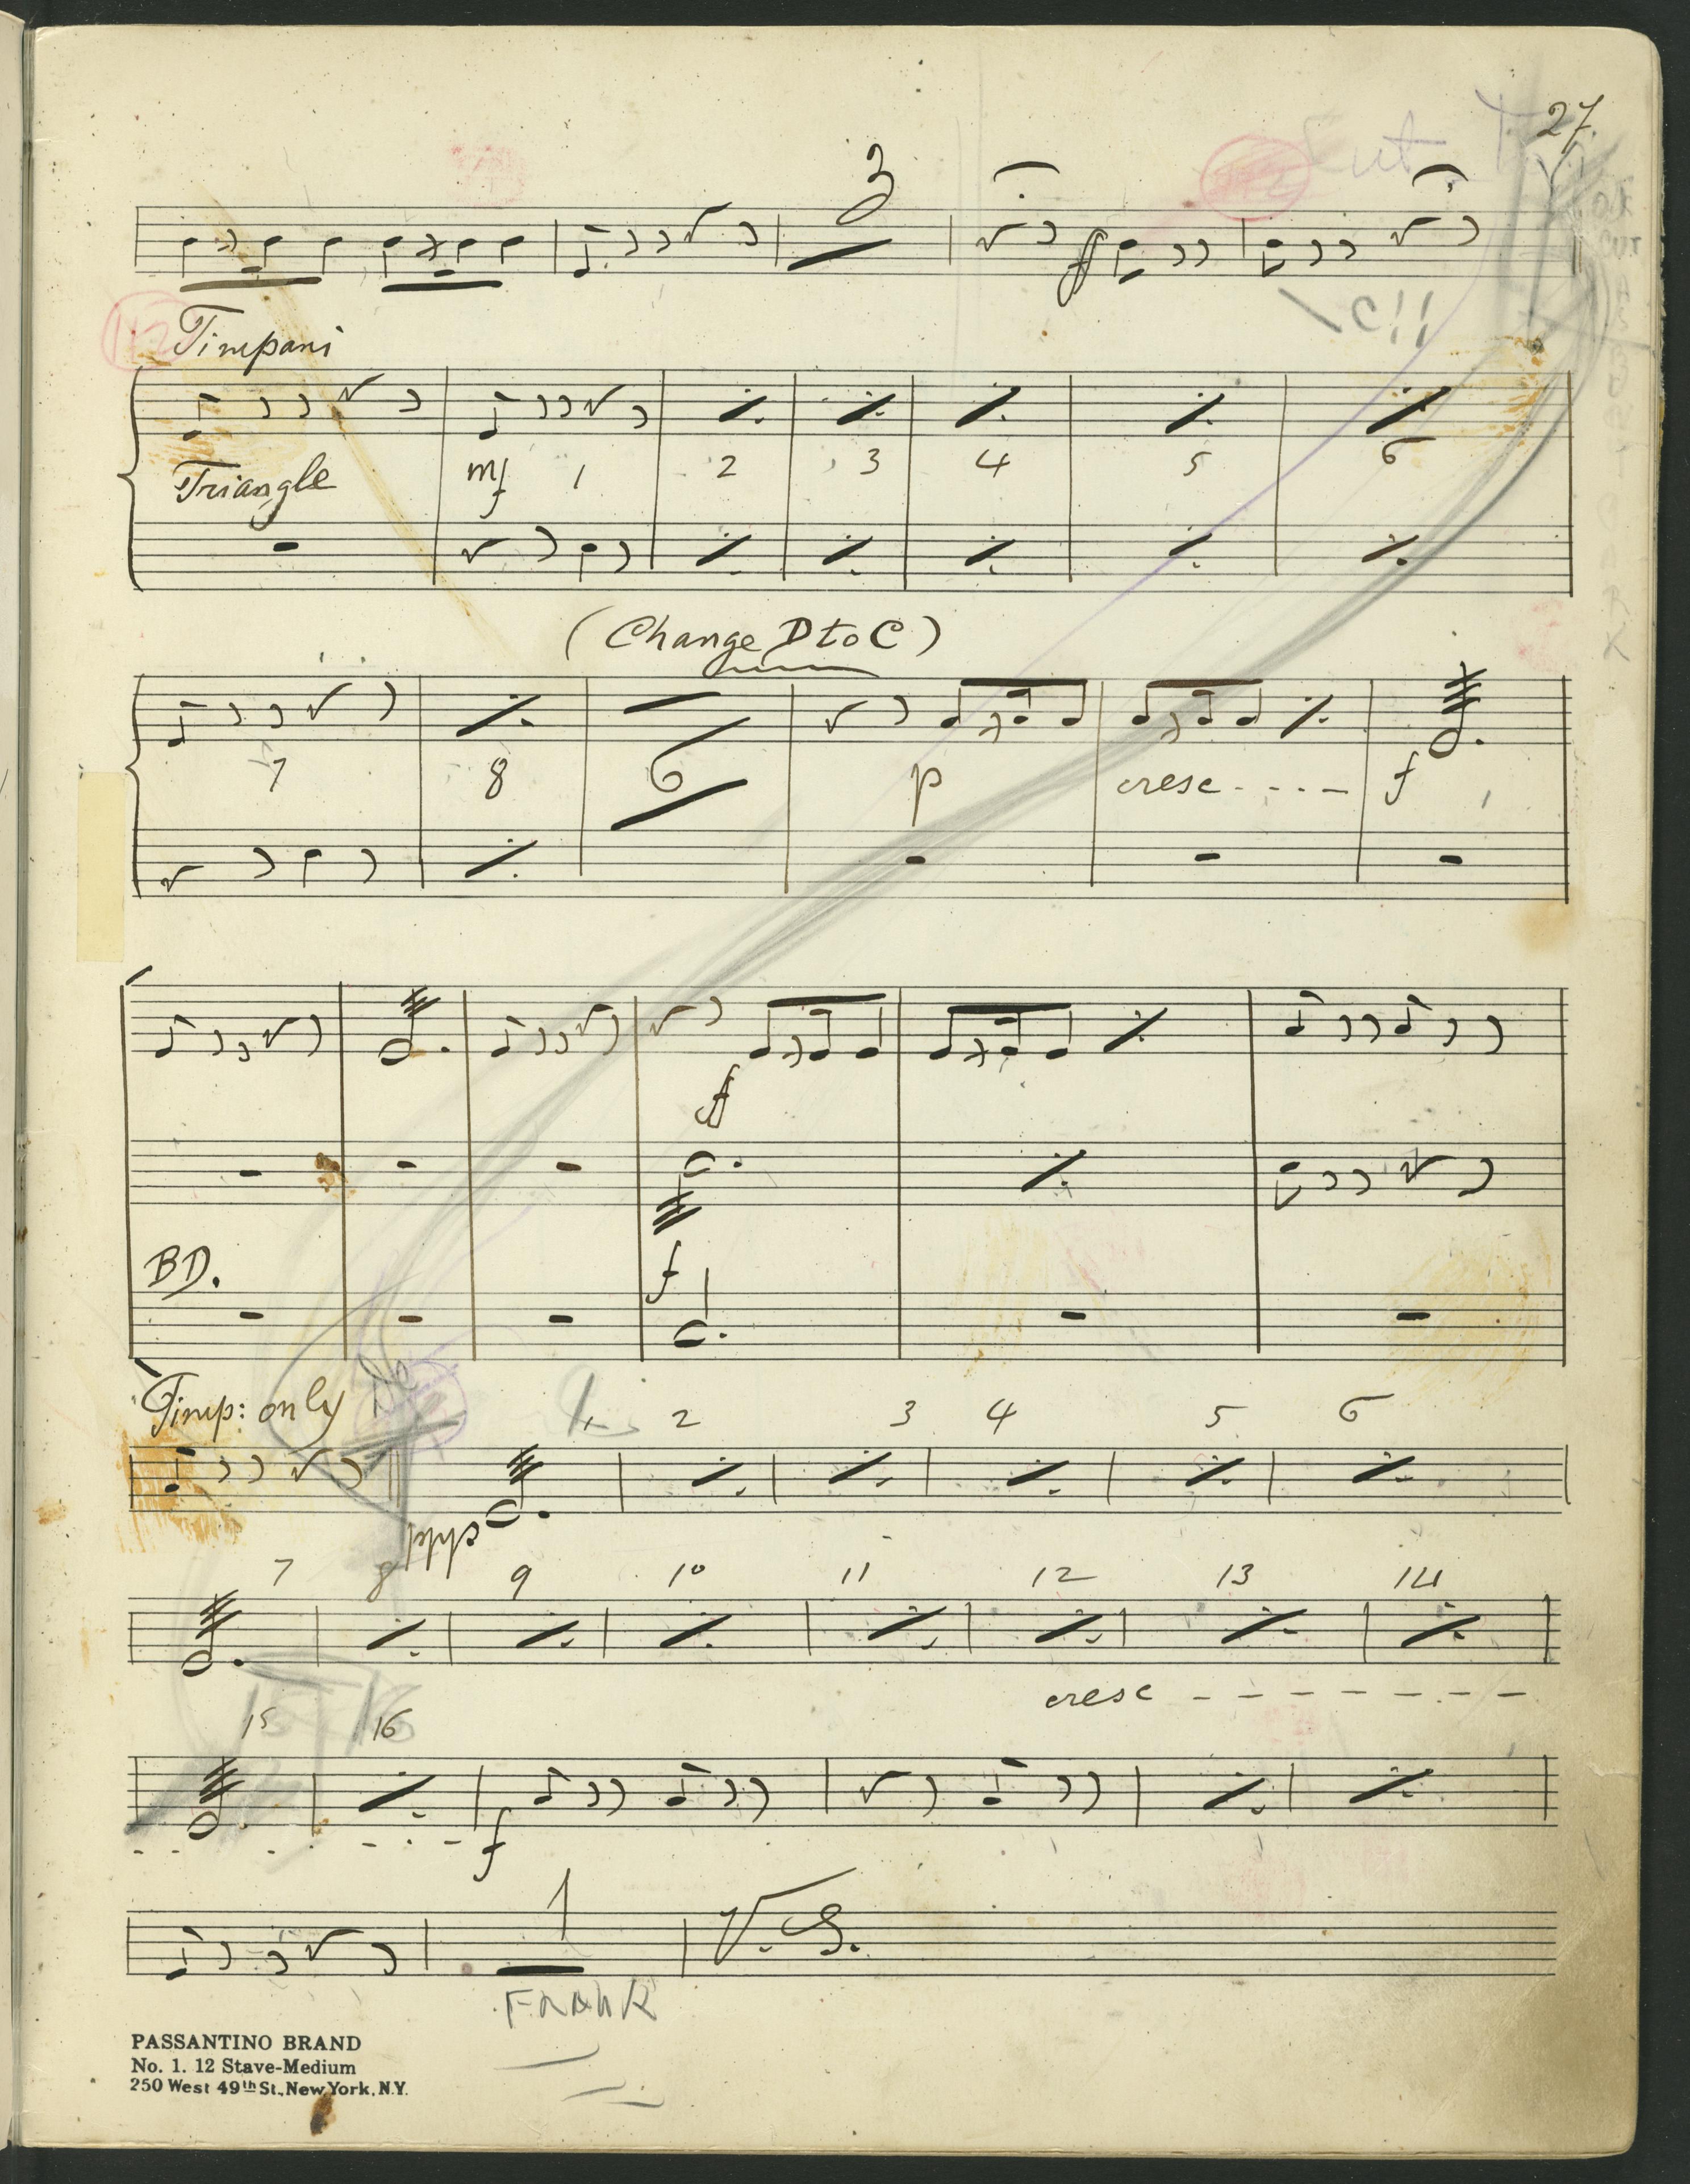 27.
Cut
3
O.K
CUT
ff
112
Timpani
Triangle
mf 1 2 3 4 5 6
(Change D to C)
7 8 6 p cresc - - - - f
ff
f
BD.
Timp: only 1 2 3 4 5 6
ppp
7 8 9 10 11 12 13 14
cresc - - - - - - -
15 16
f
1 V.S.
FRANK
PASSANTINO BRAND
No. 1. 12 Stave-Medium
250 West 49th St., New York, N.Y.